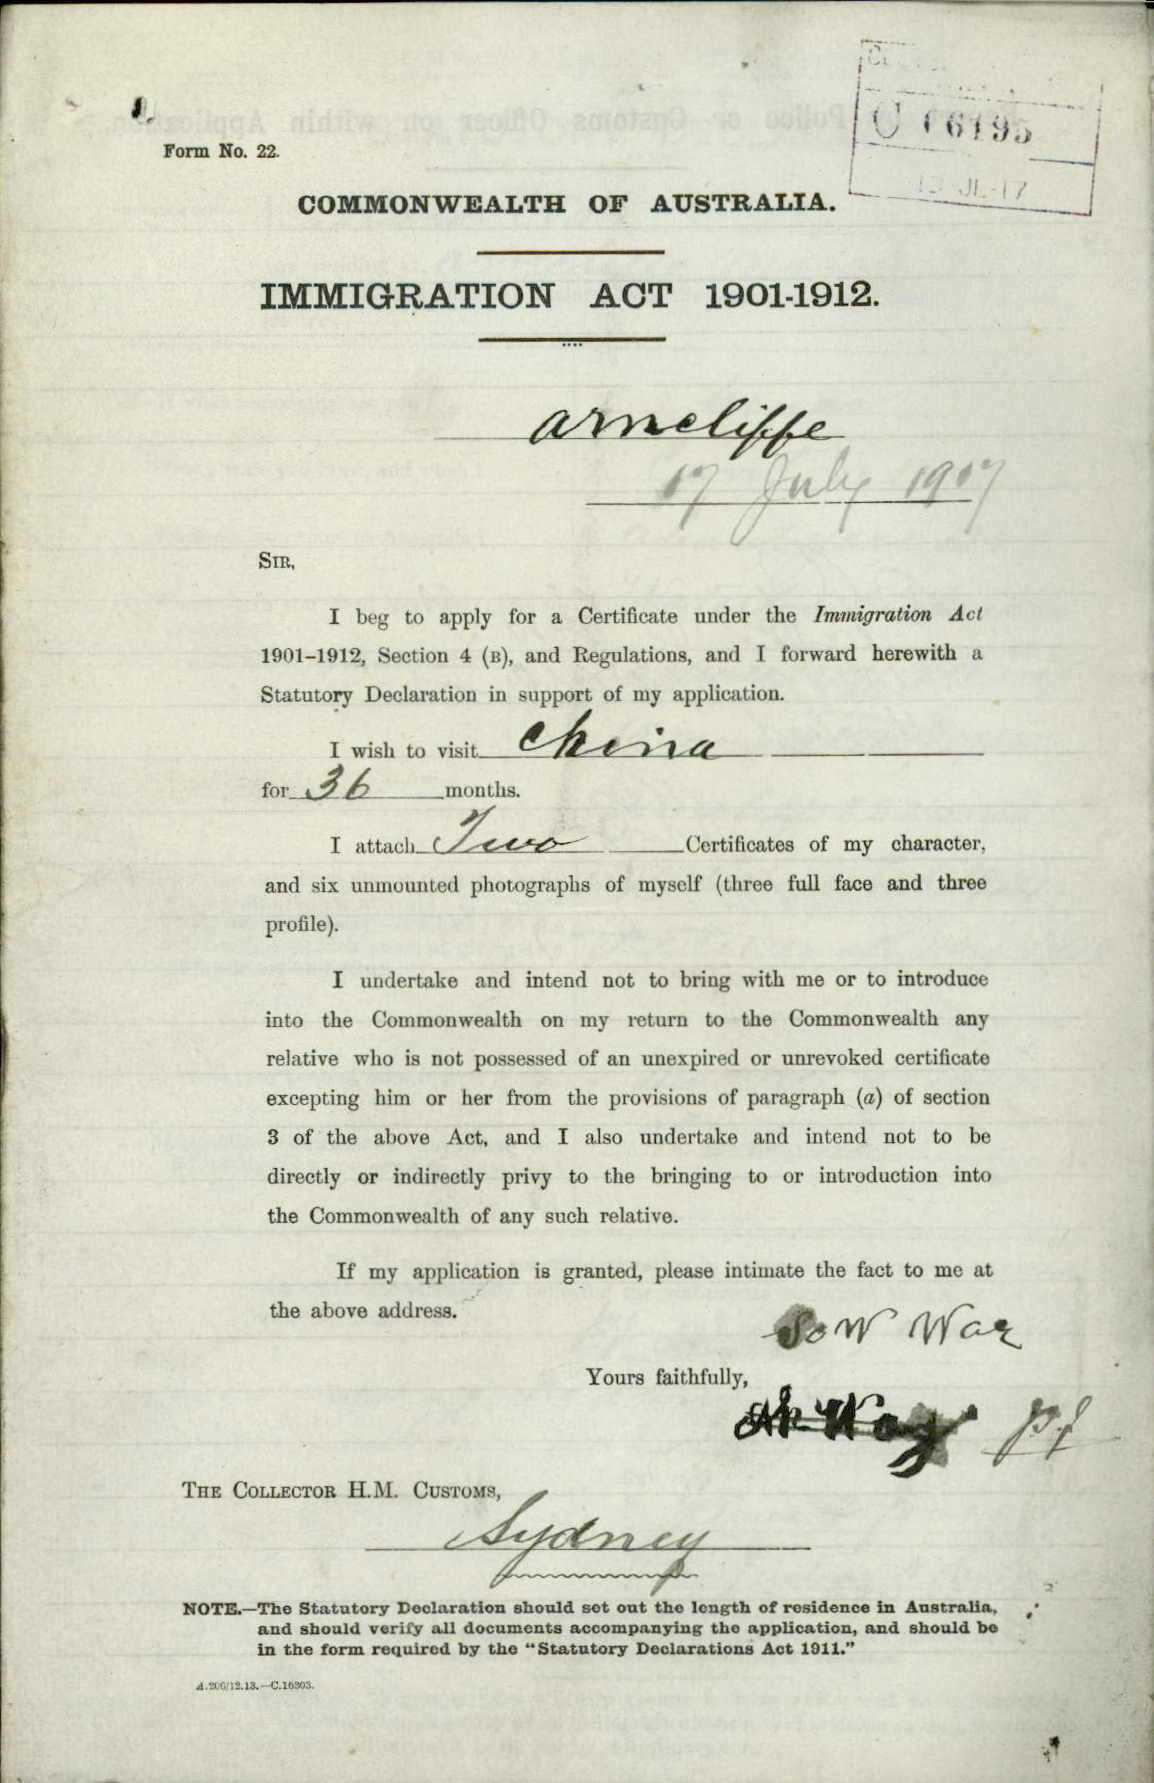 C 16195
Form No. 22.
19 JL-17
COMMONWEALTH OF AUSTRALIA.
IMMIGRATION ACT 1901-1912.
Arncliffe
17 July 1917
SIR,
I beg to apply for a Certificate under the Immigration Act
1901–1912, Section 4 (B), and Regulations, and I forward herewith a
Statutory Declaration in support of my application.
I wish to visit China
for 36 months.
I attach Two Certificates of my character,
and six unmounted photographs of myself (three full face and three
profile).
I undertake and intend not to bring with me or to introduce
into the Commonwealth on my return to the Commonwealth any
relative who is not possessed of an unexpired or unrevoked certificate
excepting him or her from the provisions of paragraph (a) of section
3 of the above Act, and I also undertake and intend not to be
directly or indirectly privy to the bringing to or introduction into
the Commonwealth of any such relative.
If my application is granted, please intimate the fact to me at
the above address.
Sow War
Yours faithfully,
THE COLLECTOR H.M. CUSTOMS,
Sydney
NOTE.—The Statutory Declaration should set out the length of residence in Australia,
and should verify all documents accompanying the application, and should be
in the form required by the “Statutory Declarations Act 1911.”
A.206/12.13.—C.16303.